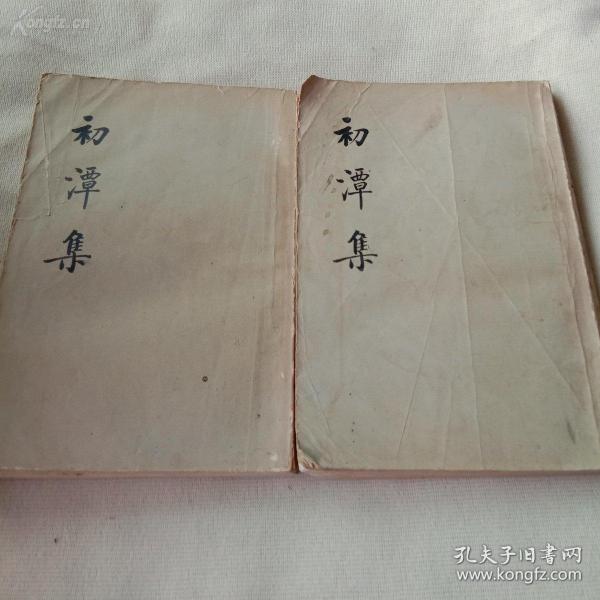 Kongfz.cn
初潭集
初潭集
孔夫子旧书网
www.kongfz.com